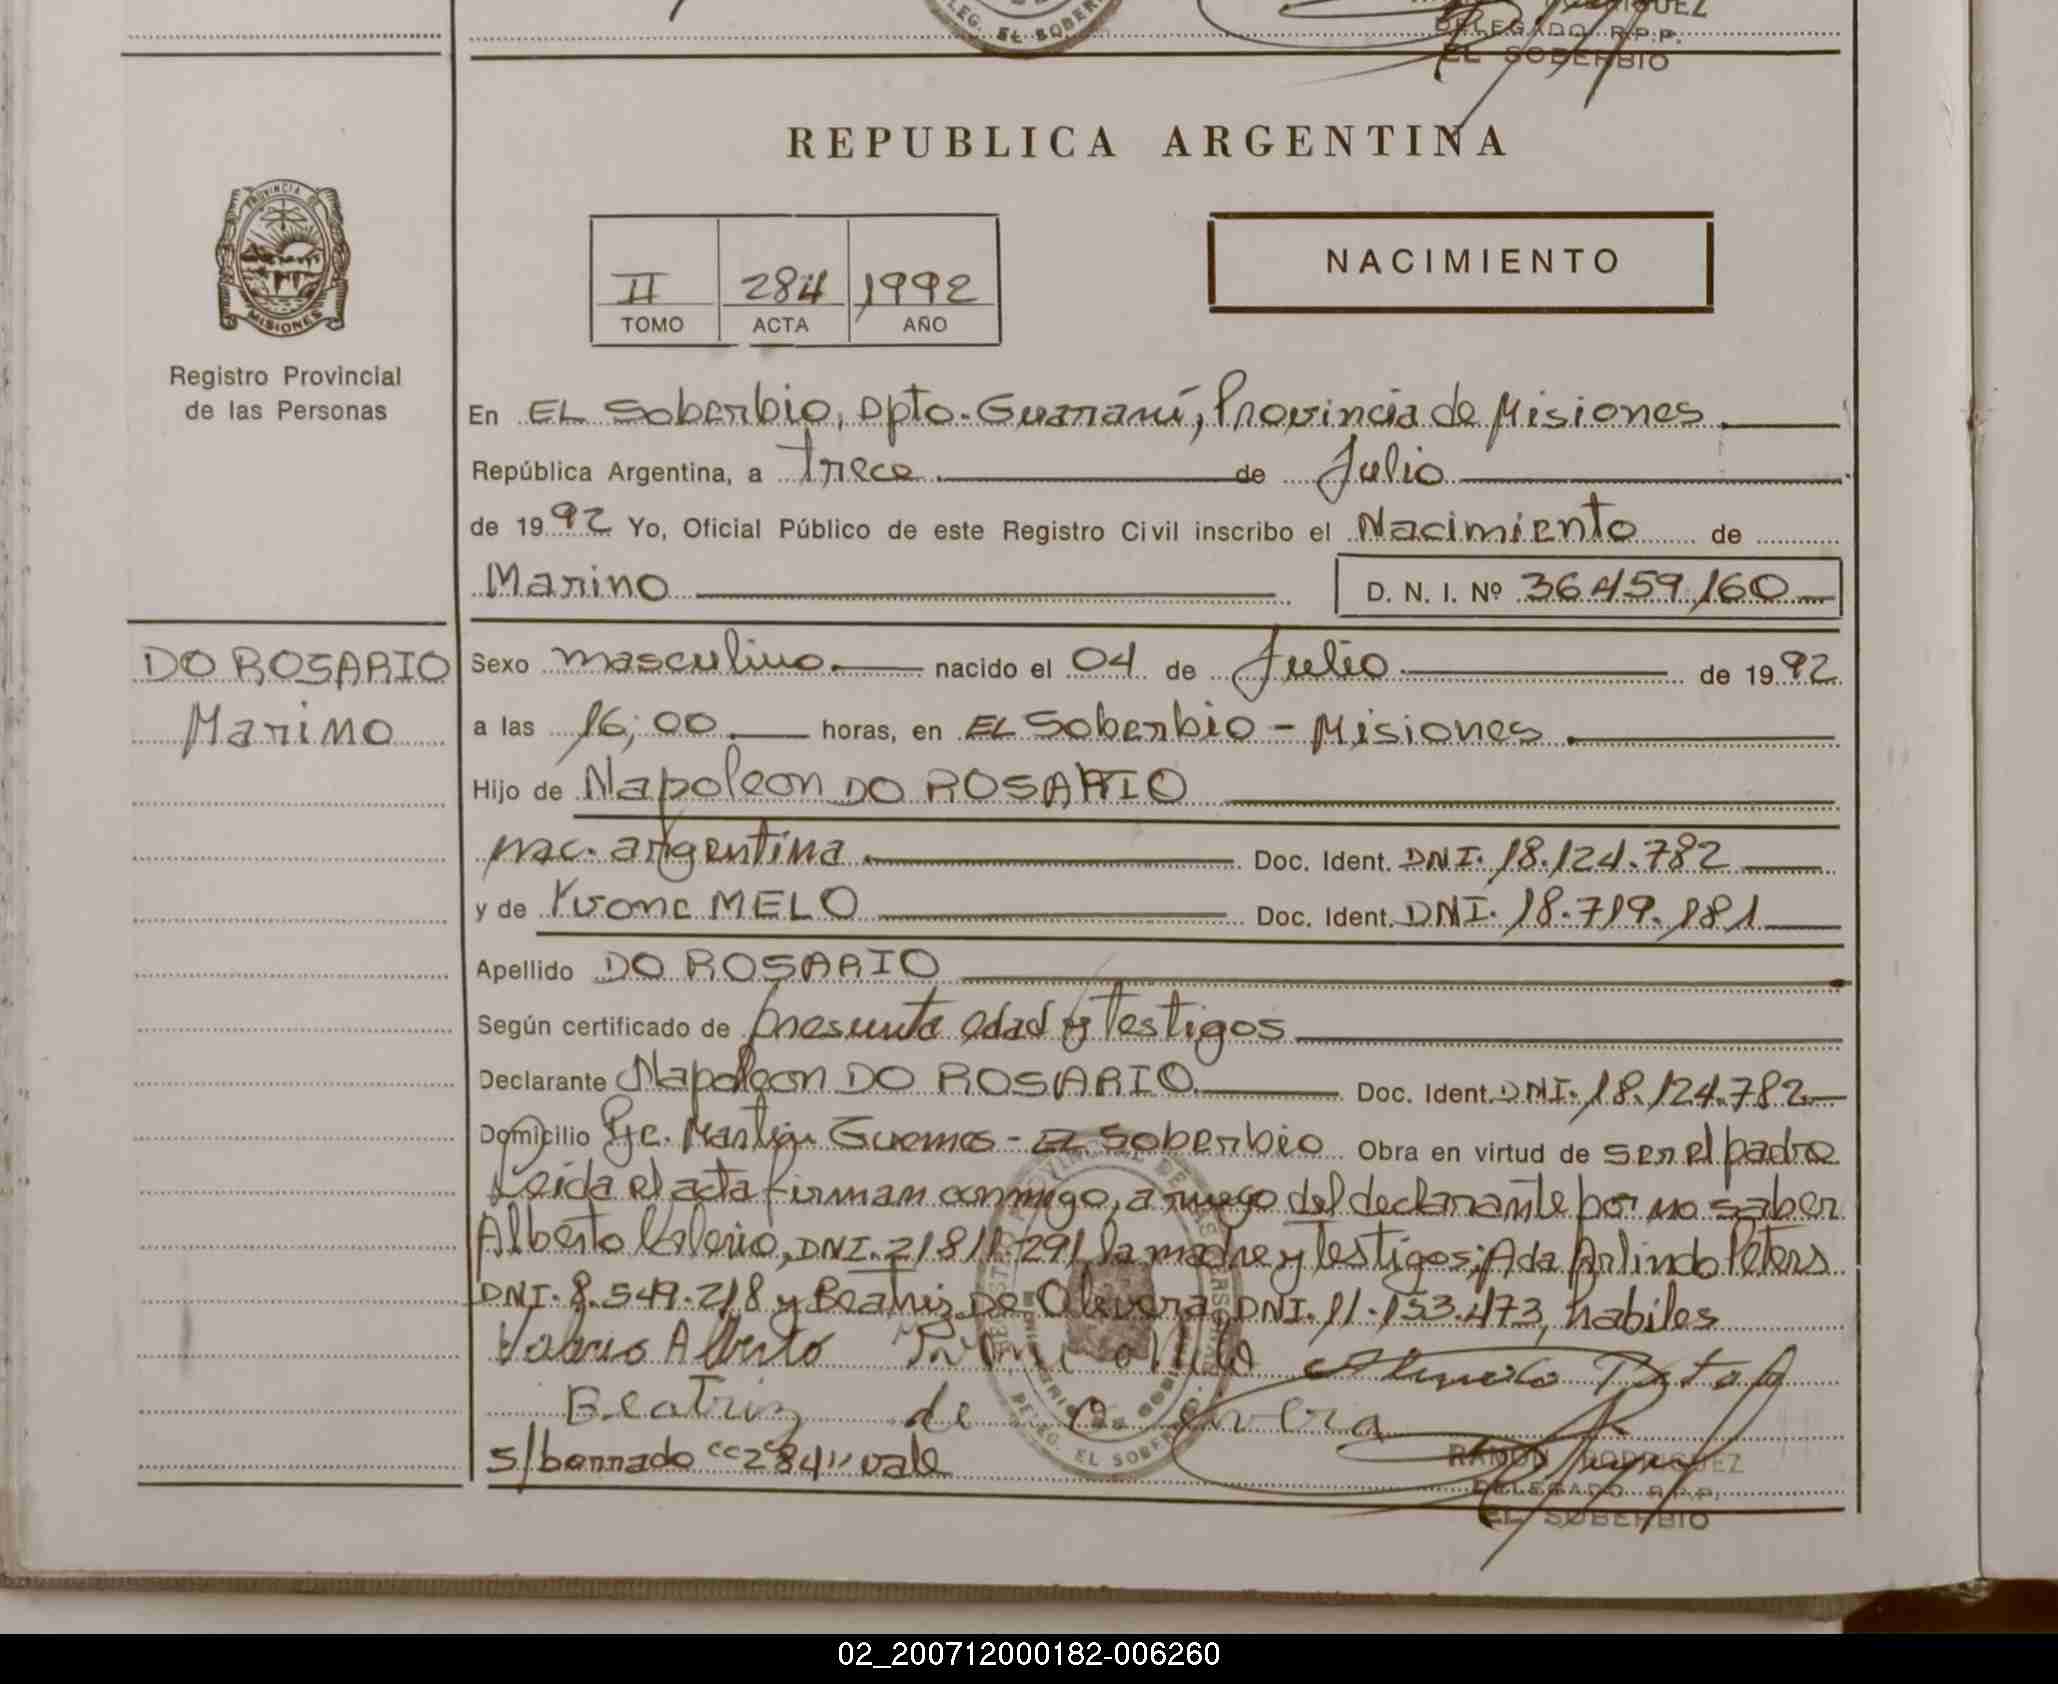 DELEG. EL SOBERBIO
DELEGADO R.P.P.
EL SOBERBIO
REPUBLICA ARGENTINA
PROVINCIA DE
MISIONES
Registro Provincial
de las Personas
II 284 1992
TOMO ACTA AÑO
NACIMIENTO
En EL Soberbio, Dpto. Guaraní, Provincia de Misiones
República Argentina, a Trece de Julio
de 1992 Yo, Oficial Público de este Registro Civil inscribo el Nacimiento de
Marino D. N. I. Nº 36.459.160
DO ROSARIO
Marino
Sexo masculino nacido el 04 de Julio de 1992
a las 16,00 horas, en EL Soberbio - Misiones
Hijo de Napoleon DO ROSARIO
nac. argentina Doc. Ident. DNI. 18.124.782
y de Yvone MELO Doc. Ident. DNI. 18.719.181
Apellido DO ROSARIO
Según certificado de presunta edad y Testigos
Declarante Napoleon DO ROSARIO Doc. Ident. DNI. 18.124.782
Domicilio Pje. Martin Guemes - EL Soberbio Obra en virtud de ser el padre
Leida el acta firman conmigo, a ruego del declarante por no saber
Alberto Valerio, DNI. 21.811.291, la madre y Testigos; Ada Arlindo Peters
DNI. 8.549.218 y Beatriz De Olivera DNI. 11.153.473, habiles
Valerio Alberto
Beatriz de Olivera
s/borrado "284" vale
DELEG. EL SOBERBIO
RAMON RODRIGUEZ
DELEGADO R.P.P.
EL SOBERBIO
02_200712000182-006260